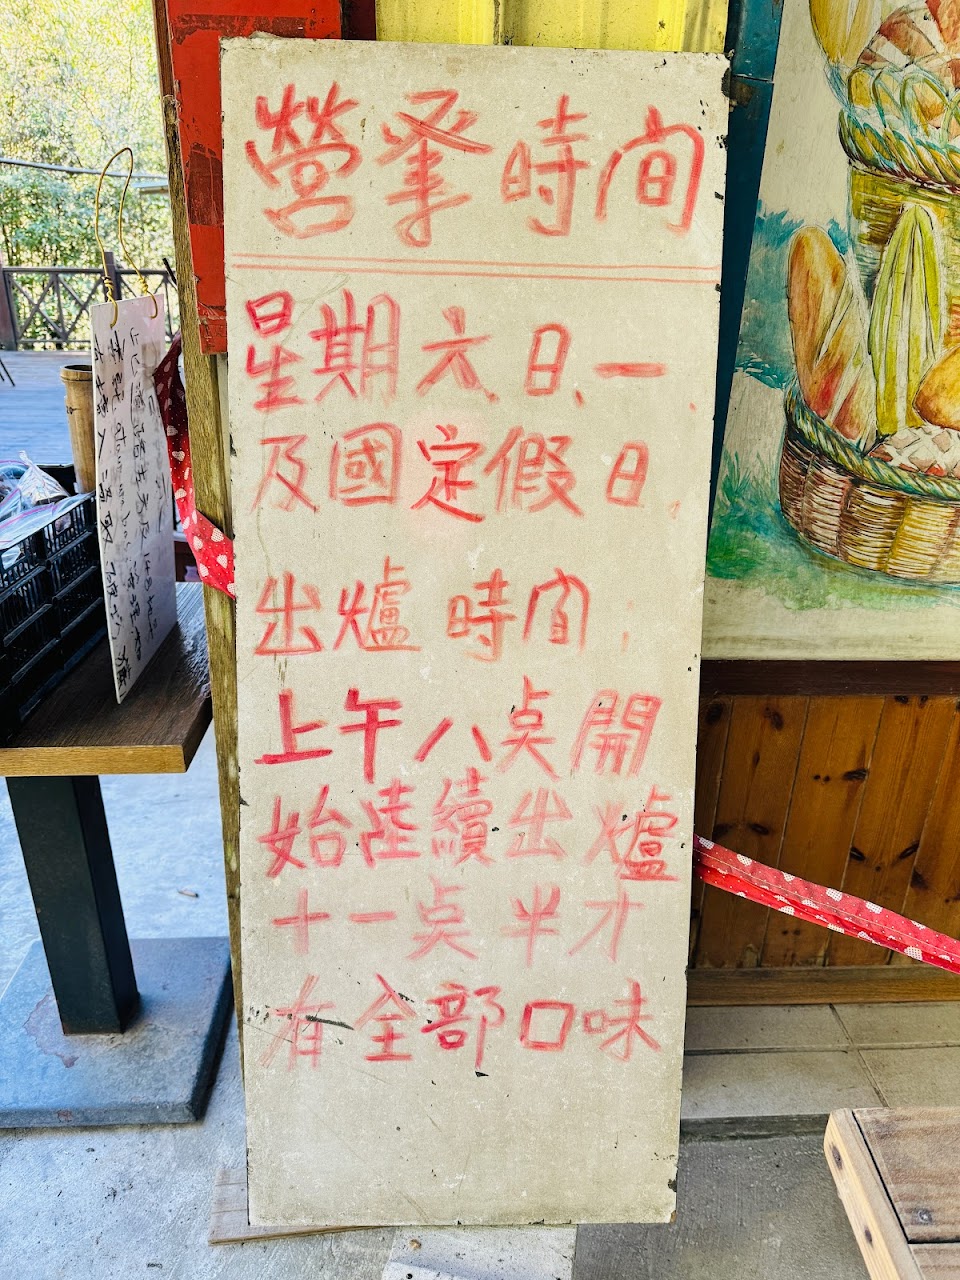 營業時間
星期六、日、一、
及國定假日.
出爐時間:
上午八点開
始陸續出爐
十一点半才
有全部口味